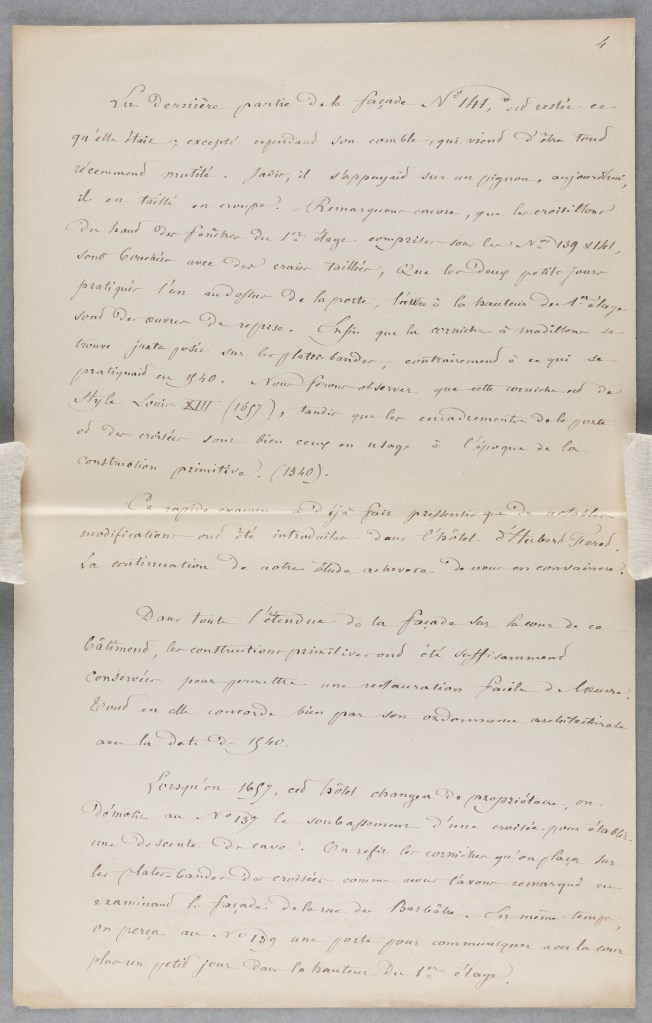 4
La dernière partie de la façade N° 141, est restée ce
qu'elle était, excepté cependant son comble, qui vient d'être tout
récemment mutilé. Jadis, il s'appuyait sur un pignon, aujourd'hui,
il est taillé en croupe. Remarquons encore, que les croisillons
du haut des fenêtres du 1er étage comprises sous les Nos 139 & 141,
sont bouchés avec des craies taillées, Que les deux petits jours
pratiqués l'un au dessus de la porte, l'autre à la hauteur du 1er étage
sont des œuvres de reprise. Enfin que la corniche à modillons se
trouve juxta posée sur les plates-bandes, contrairement à ce qui se
pratiquait en 1540. Nous ferons observer que cette corniche est de
Style Louis XIII (1657), tandis que les encadrements de la porte
et des croisées sont bien ceux en usage à l'époque de la
construction primitive. (1540).
Ce rapide examen a déjà fait pressentir que de notables
modifications ont été introduites dans l'hôtel d'Hubert
La continuation de notre étude achevera de nous en convaincre.
Dans toute l'étendue de la façade sur la cour de ce
bâtiment, les constructions primitives ont été suffisamment
conservées pour permettre une restauration facile de l'œuvre.
Tout en elle concorde bien par son ordonnance architecturale
avec la date de 1540.
Lorsqu'en 1657, cet hôtel changea de propriétaire, on
démolit au N° 139 le soubassement d'une croisée pour établir
une descente de cave. On refit les corniches qu'on plaça sur
les plates-bandes des croisées comme nous l'avons remarqué en
examinant la façade de la rue du Barbâtre. En même temps,
on perça au N° 139 une porte pour communiquer avec la cour
plus un petit jour dans la hauteur du 1er étage.